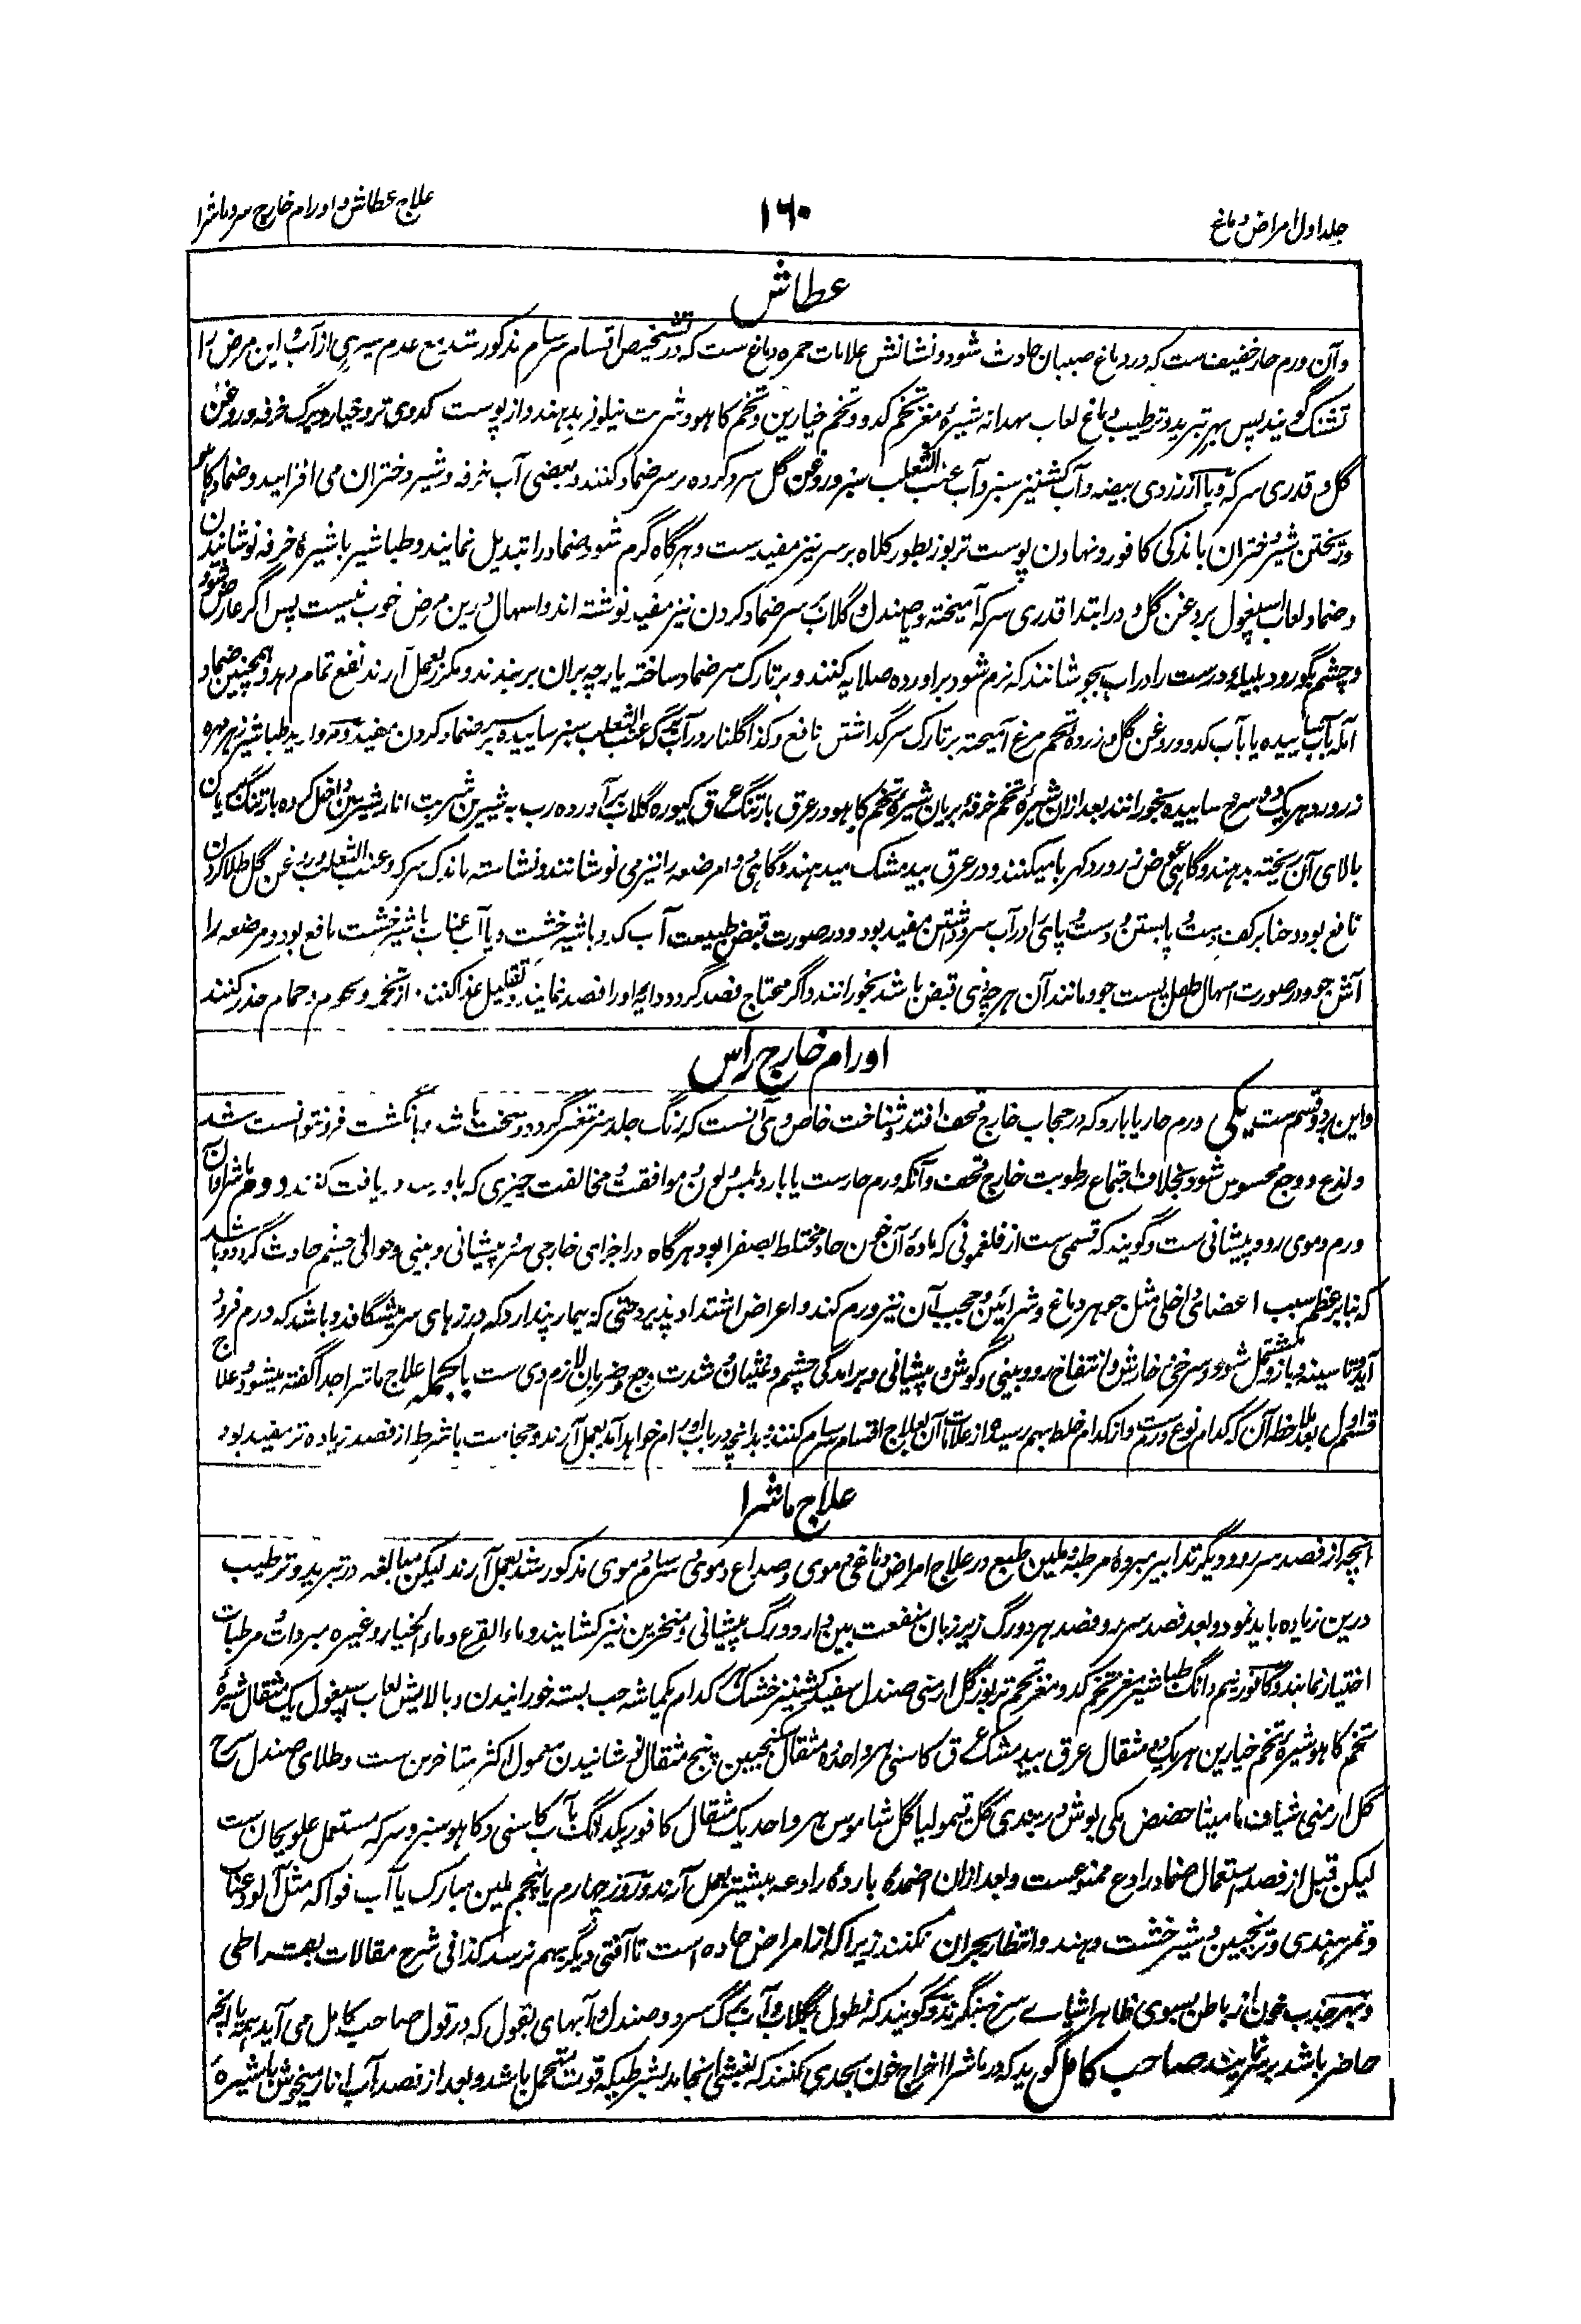 جلد اول امراض دماغ
۱۶۰
علاج عطاش و اورام خارج سر و ماشرا
عطاش
وآن ورم حار خفیف ست که در دماغ صبیان حادث شود و نشانش علامات حمره دماغ ست که در تشخیص اقسام سرسام مذکور شد مع عدم سیری از آب و این مرض را
تشنک گویند پس بهر تبرید و ترطیب دماغ لعاب بهدانه شیره مغز تخم کدو و تخم خیارین و تخم کاهو و شربت نیلوفر بدهند و از پوست کدوی تر و خیار و برگ خرفه و روغن
گل و قدری سرکه و یا از زردی بیضه و آب کشنیز سبز و آب عنب الثعلب سبز و روغن گل سرد کرده بر سر ضماد کنند و بعضی آب خرفه و شیر دختران می افزایند و ضماد کاهو
و ریختن شیر دختران با اندکی کافور و نهادن پوست تربوز بطور کلاه بر سر نیز مفیدست و هرگاه گرم شود ضماد را تبدیل نمایند و طباشیر با شیره خرفه نوشانیدن
و ضماد لعاب اسپغول بروغن گل و در ابتدا قدری سرکه آمیخته و صندل و گلاب بر سر ضماد کردن نیز مفید نوشته اند و اسهال درین مرض خوب نیست پس اگر عارض شود
و چشم بگو رود بلیله درست را در آب بجوشانند که نرم شود برآورده صلایه کنند و بر تارک سر ضماد ساخته پارچه بران بربندند و مکرر بعمل آرند نفع تمام دهد و همچنین ضماد
آمله بآب ساییده یا بآب کدو و روغن گل و زرده تخم مرغ آمیخته بر تارک سر گذاشتن نافع و کذا گلنار در آب برگ عنب الثعلب سبز ساییده بر سر ضماد کردن مفید و مروارید طباشیر زهرمهره
زرورد هریک دو سرخ ساییده بخورانند بعد ازان شیره تخم خرفه بریان شیره تخم کاهو در عرق بارتنگ عرق کیوره گلاب برآورده رب به شیرین شربت انار شیرین داخل کرده بارتنگ
بالای آن ریخته بدهند و گاهی عوض زرورد کهربا میکنند و در عرق بیدمشک میدهند و گاهی دوا مرضعه را نیز می نوشانند و نشاسته باندک سرکه و عنب الثعلب و روغن گل طلا کردن
نافع بود و حنا بر کف دست و پا بستن و دست و پای را در آب سرد داشتن مفید بود و در صورت قبض طبیعت آب کدو با شیرخشت و یا آب عناب با شیرخشت نافع بود و مرضعه را
آش جو و در صورت اسهال طفل پست جو و مانند آن هر چیزی قبض باشد بخورانند و اگر محتاج فصد گردد دایه او را فصد نمایند و تقلیل غذا کنند و از تخمه و لحوم و حمام حذر کنند
اورام خارج راس
واین بر دو قسم ست یکی ورم حار یا بارد که در حجاب خارج قحف افتد و شناخت خاص وی آنست که رنگ جلد سر متغیر گردد و سخت باشد و بانگشت فرو نتوانست شد
و لذع و وجع محسوس شود بخلاف اجتماع رطوبت خارج قحف و آنکه ورم حارست یا بارد بلمس و لون و موافقت و مخالفت چیزی که باو رسد دریافت کنند دوم ماشرا و آن
ورم دموی رو و پیشانی ست و گویند که قسمی ست از فلغمونی که ماده آن خون حاد مختلط بصفرا بود و هرگاه در اجزای خارجی سر و پیشانی و بینی و حوالی چشم حادث گردد و باشد
که بنابر عظم سبب اعضای داخلی مثل جوهر دماغ و شرائین و حجب آن نیز ورم کند و اعراض اشتداد پذیرد حتی که بیمار پندارد که درزهای سر میشگافد و باشد که ورم فرود
آید و تا سینه و بازو مشتمل شود و سرخی و خارش و انتفاخ رو و بینی و گوش و پیشانی و برآمدگی چشم و غثیان و شدت وجع و ضربان لازم وی ست بالجمله علاج ماشرا جدا گفته میشود و علاج
قسم اول بعد ملاحظه آن که کدام نوع ورم ست و از کدام خلط بهم رسیده از علامات آن بعلاج اقسام سرسام کنند و بدانچه در باب اورام خواهد آمد بعمل آرند و حجامت باشرط از فصد زیاده تر مفید بود
علاج ماشرا
آنچه از فصد سررو و دیگر تدابیر مبرده مرطبه و ملین طبع در علاج امراض دماغی دموی و صداع دموی و سرسام دموی مذکور شد بعمل آرند لیکن مبالغه در تبرید و ترطیب
درین زیاده باید نمود و بعد فصد سررو فصد هر دو رگ زیر زبان منفعت بین دارد و رگ پیشانی و منخرین نیز کشایند و ماء القرع و ماء الخیار و غیره مبردات و مرطبات
اختیار نمایند و کافور نیم دانگ طباشیر مغز تخم کدو مغز تخم تربوز گل ارمنی صندل سفید کشنیز خشک هر کدام یکماشه حب بسته خورانیدن و بالایش لعاب اسپغول یک مثقال شیره
تخم کاهو شیره تخم خیارین هریک دو مثقال عرق بیدمشک عرق کاسنی هر واحد ده مثقال سکنجبین پنج مثقال نوشانیدن معمول اکثر متاخرین ست و طلای صندل سرخ
گل ارمنی شیاف مامیثا حضض مکی بوش دربندی گل قیمولیا گل شاموس هر واحد یک مثقال کافور یکدانگ بآب کاسنی و کاهو سبز و سرکه مستعمل علویخان ست
لیکن قبل از فصد استعمال ضماد رادع ممنوعست و بعد ازان اضمده بارده رادعه بیشتر بعمل آرند و روز چهارم یا پنجم ملین مبارک یا آب فواکه مثل آلو و عناب
و تمر هندی و ترنجبین و شیرخشت دهند و انتظار بحران نکنند زیرا که از امراض حاده است تا آفتی دیگر بهم نرسد کذا فی شرح مقالات بقراطی
و بهر جذب خون از باطن بسوی ظاهر اشیای سرخ بنگرند و گویند که نطول گلاب و آب برگ سرد و صندل و آبهای بقول که در قول صاحب کامل می آید
حاضر باشد بر سر ریزند صاحب کامل گوید که در ماشرا اخراج خون بحدی کنند که بغشی انجامد بشرطیکه قوت متحمل باشد و بعد از فصد آب انار میخوش با شیره